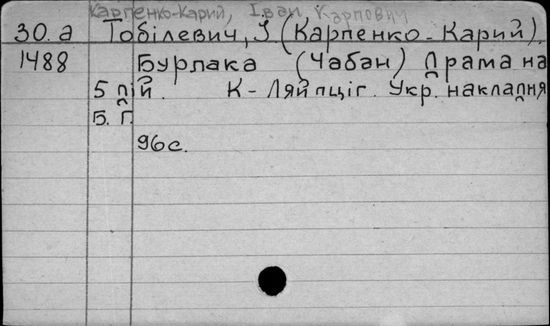 Карпенко-Карий, Іван Карпович
30.а Тобілевич, І (Карпенко-Карий).
1488 Бурлака (Чабан) Драма на
5 дій. К-Ляйпціг. Укр. накладня
Б. Г.
96с.